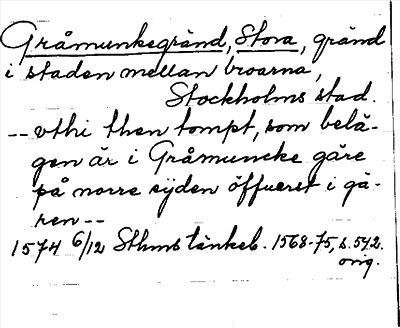 Gråmunkegränd, Stora, gränd
i staden mellan broarna,
Stockholms stad.
-- vthi then tompt, som belä-
gen är i Gråmuncke gåre
på norre syden öffuerst i gå-
ren --
1574 6/12 Sthms tänkeb. 1568-75, s. 542.
orig.